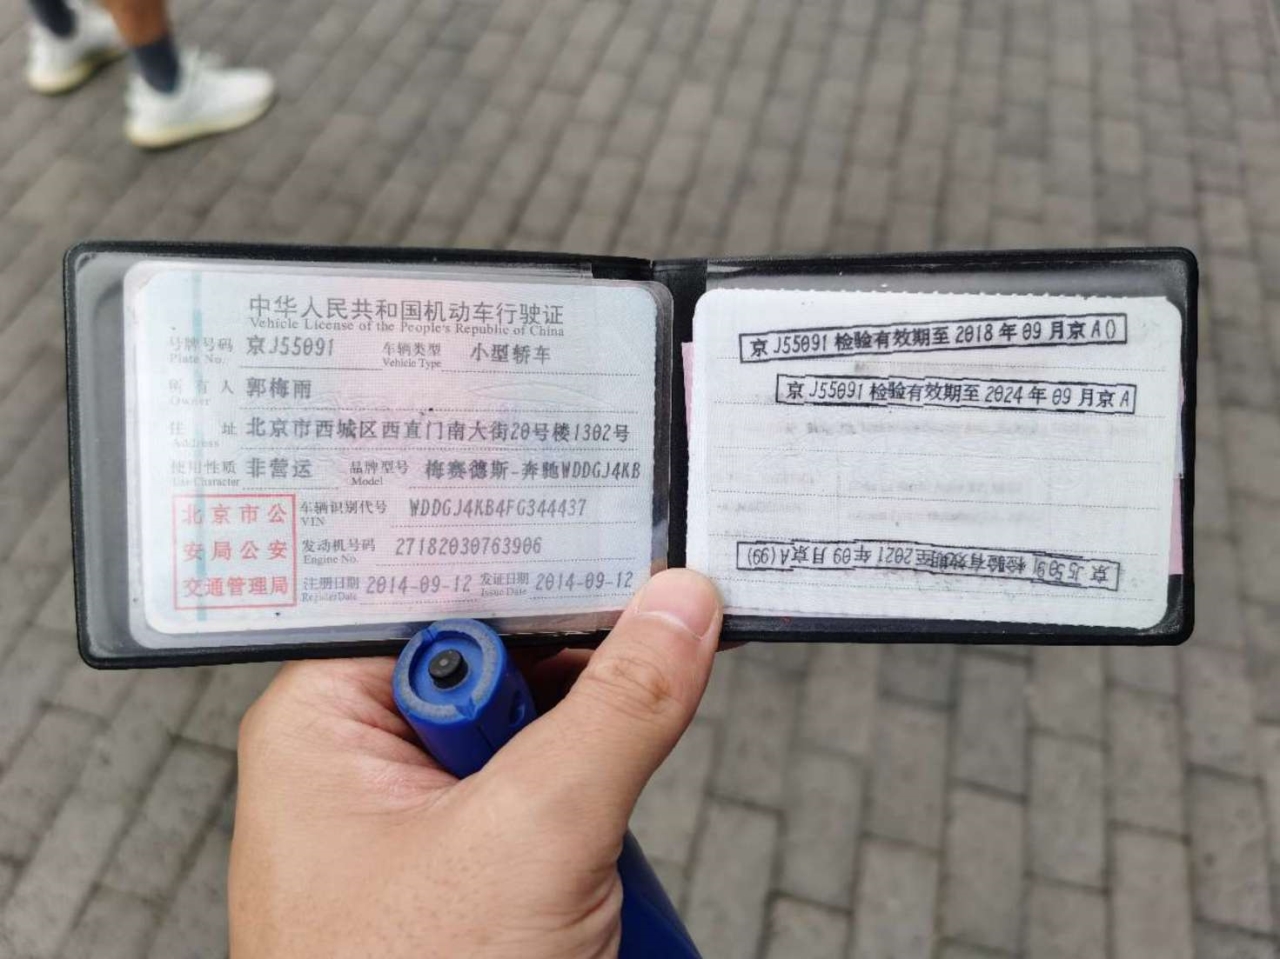 中华人民共和国机动车行驶证
Vehicle License of the People's Republic of China
号牌号码 京J55091 车辆类型 小型轿车
Plate No. Vehicle Type
所有人 郭梅雨
Owner
住址 北京市西城区西直门南大街20号楼1302号
Address
使用性质 非营运 品牌型号 梅赛德斯-奔驰WDDGJ4KB
Use Character Model
北京市公
安局公安
交通管理局
车辆识别代号 WDDGJ4KB4FG344437
VIN
发动机号码 27182030763906
Engine No.
注册日期 2014-09-12 发证日期 2014-09-12
Register Date Issue Date
京J55091检验有效期至2018年09月京A0
京J55091检验有效期至2024年09月京A
京J55091检验有效期至2021年09月京A(99)